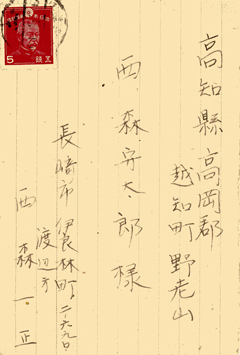 高知縣高岡郡
越知町野老山
西森安太郎様
長崎市伊良林町二ノ六九〇
渡辺方
西森一正
5